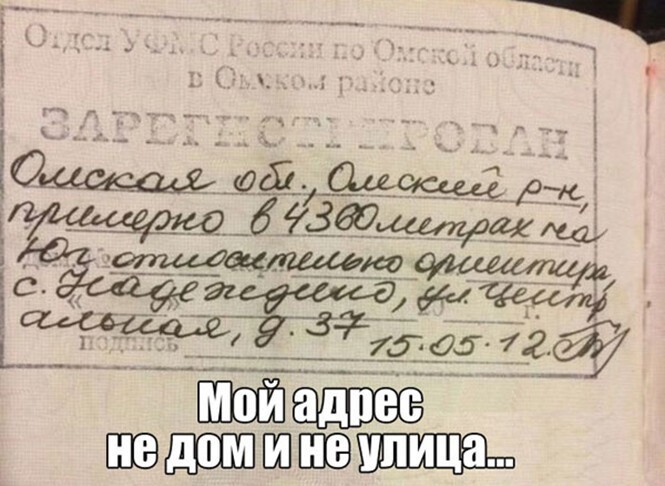 Отдел УФМС России по Омской области
в Омском районе
ЗАРЕГИСТРИРОВАН
Омская обл., Омский р-н,
примерно в 4360 метрах на
Юг относительно ориентира,
с. Надеждино, ул. Центр
альная, д. 37
подпись
15.05.12.
Мой адрес
не дом и не улица...